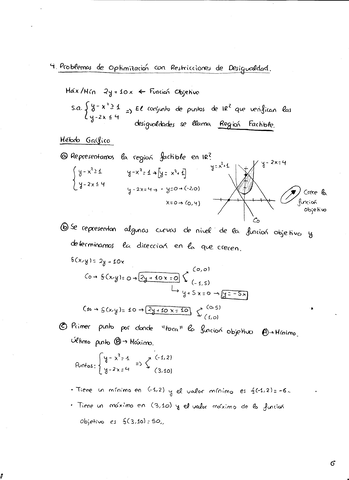 4. Problemas de Optimización con Restricciones de Desigualdad.
Máx/Mín 2y + 10x ← Función Objetivo
s.a. { y - x² ≥ 1
y - 2x ≤ 4
⇒ El conjunto de puntos de ℝ² que verifican las
desigualdades se llama Región Factible.
Método Gráfico
a) Representamos la región factible en ℝ²
{ y - x² ≥ 1
y - 2x ≤ 4
y - x² = 1 → [y = x² + 1]
y - 2x = 4 → y = 0 → (-2,0)
x = 0 → (0,4)
y = x² + 1
y - 2x = 4
C₀
Crece la
función
objetivo
b) Se representan algunas curvas de nivel de la función objetivo y
determinamos la dirección en la que crecen.
f(x,y) = 2y + 10x
C₀ → f(x,y) = 0 → 2y + 10x = 0
(0,0)
(-1,5)
y + 5x = 0 → y = -5x
C₁₀ → f(x,y) = 10 → 2y + 10x = 10
(0,5)
(1,0)
c) Primer punto por donde "toca" la función objetivo A → Mínimo.
Último punto B → Máximo.
Puntos: { y - x² = 1
y - 2x = 4
⇒ (-1,2)
(3,10)
- Tiene un mínimo en (-1,2) y el valor mínimo es f(-1,2) = -6.
- Tiene un máximo en (3,10) y el valor máximo de la función
objetivo es f(3,10) = 50.
6